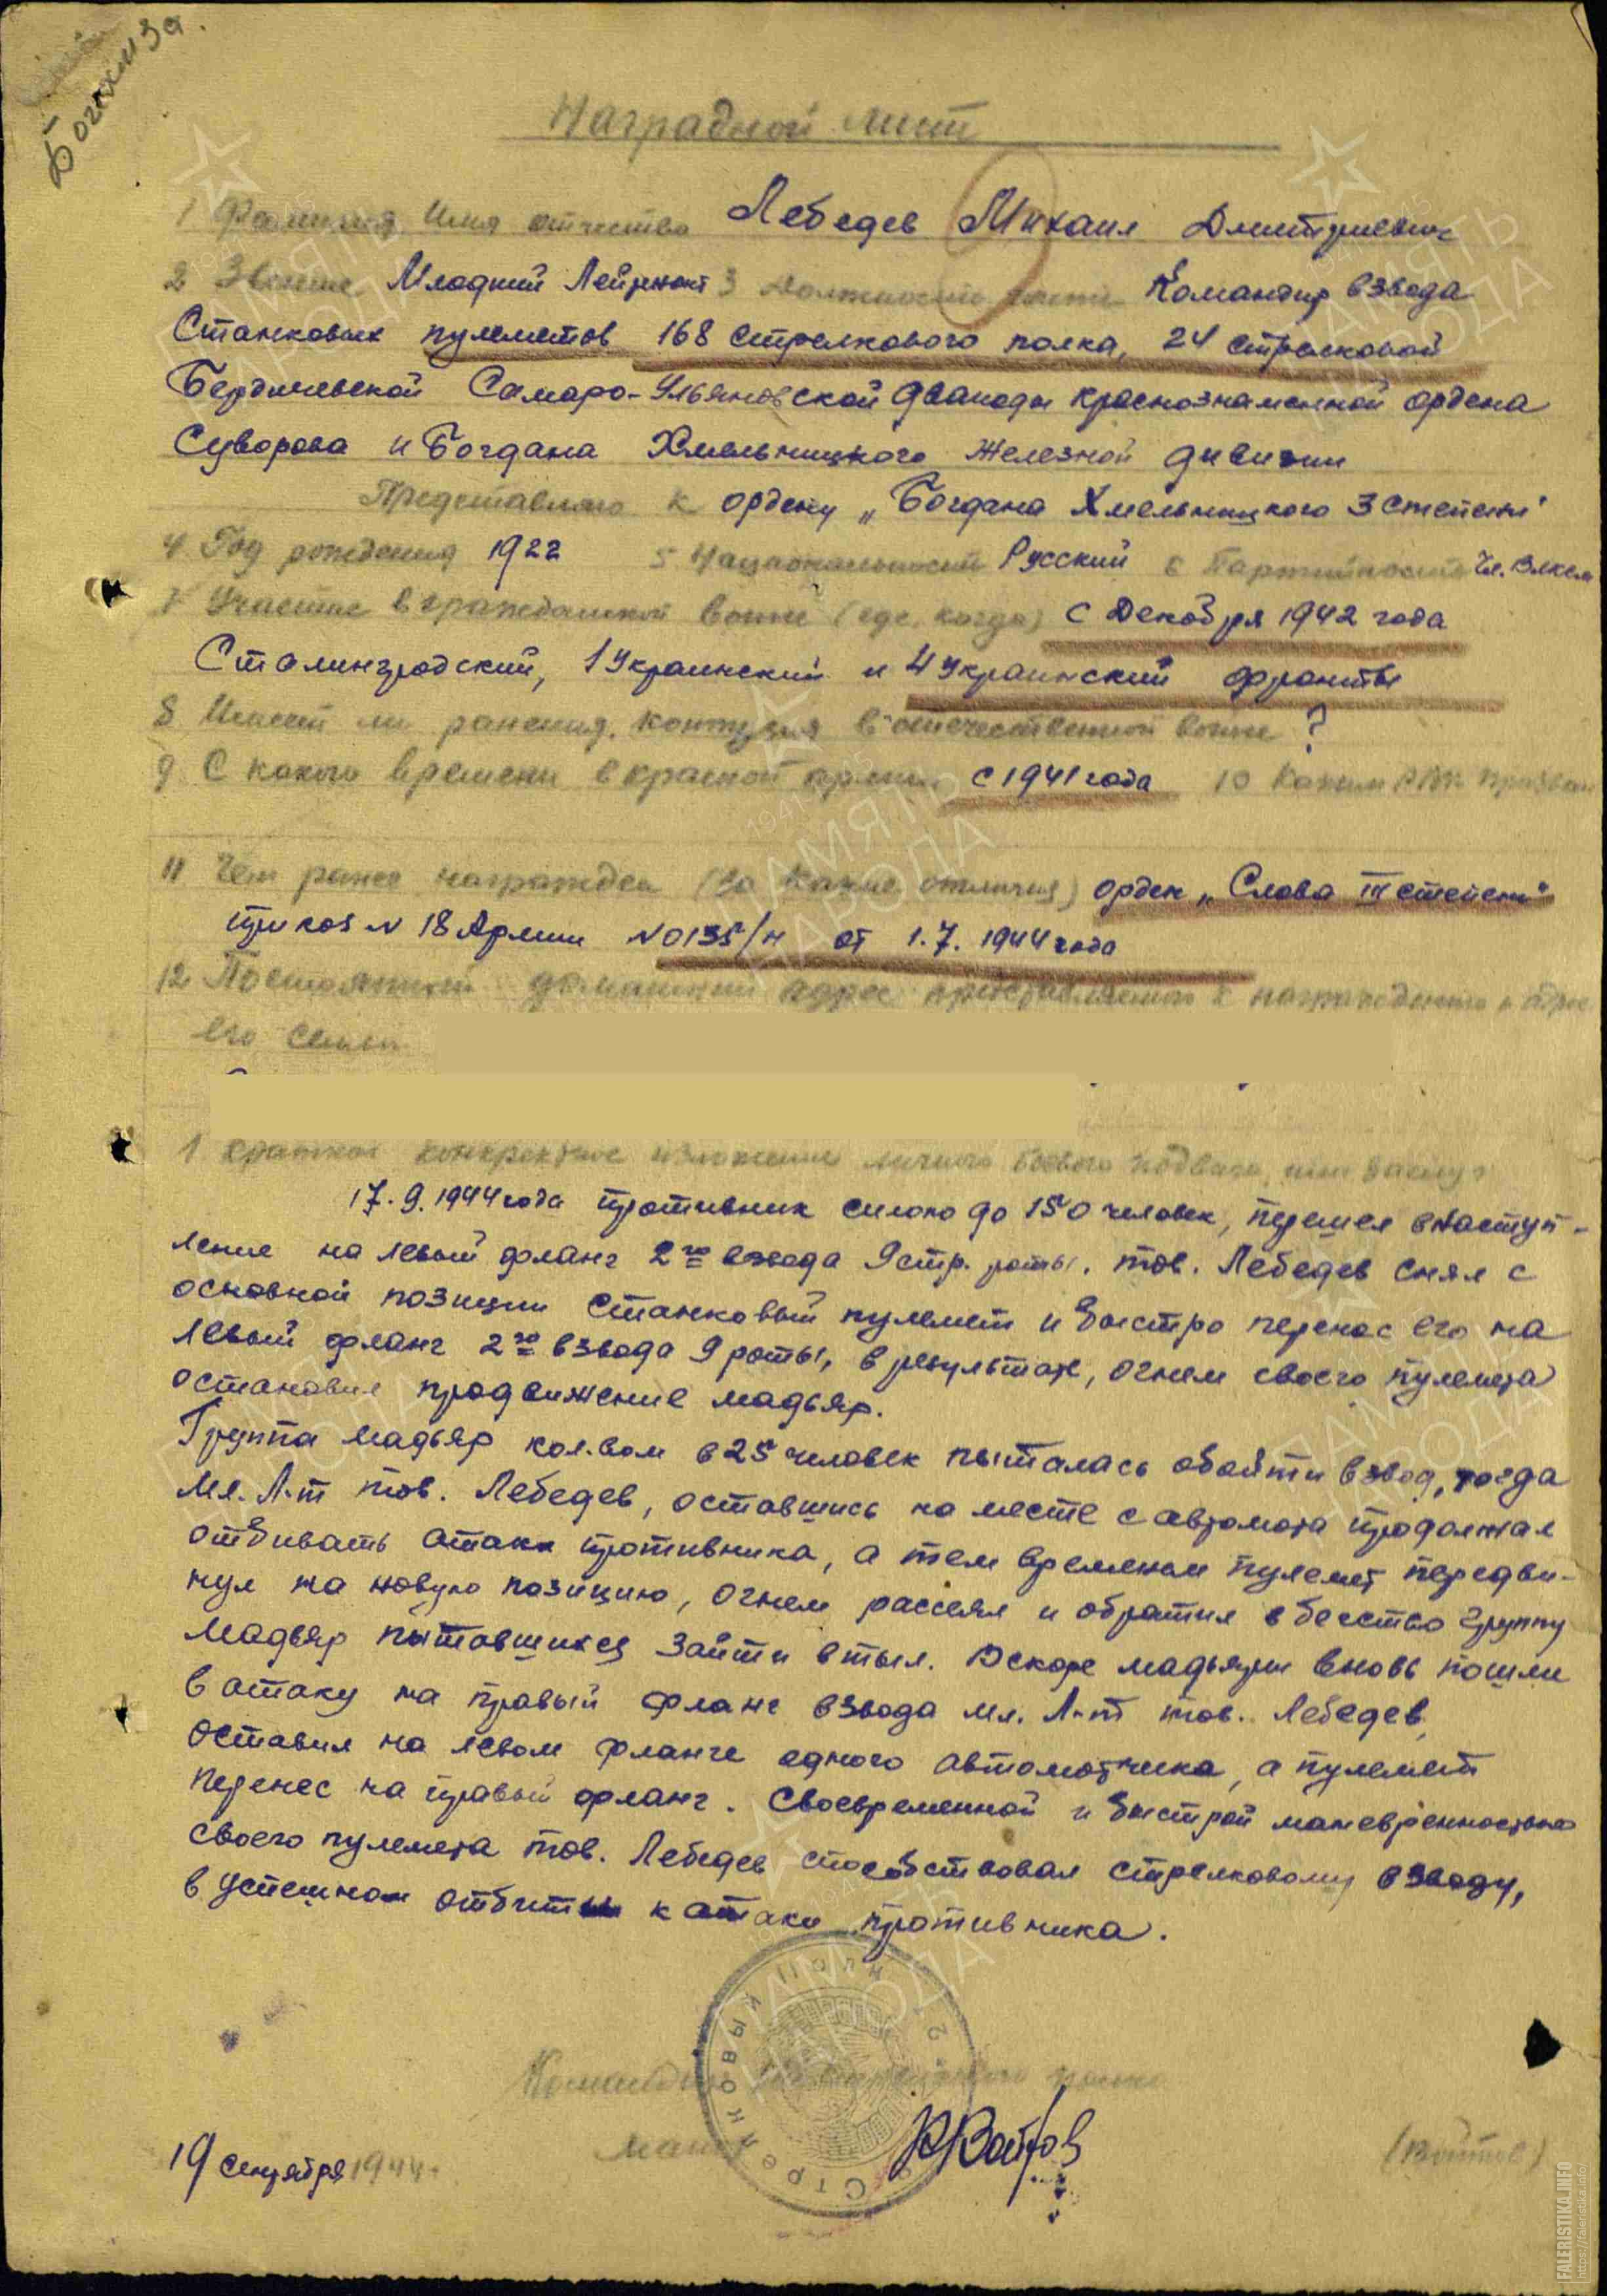 Богд Хм 3 ст.
Наградной лист
1 Фамилия Имя отчество Лебедев Михаил Дмитриевич
2 Звание Младший Лейтенант 3 должность часть Командир взвода
Станковых пулеметов 168 стрелкового полка, 24 стрелковой
Бердичевской Самаро-Ульяновской дважды краснознаменной ордена
Суворова и Богдана Хмельницкого Железной дивизии
Представляю к ордену „Богдана Хмельницкого 3 степени"
4 Год рождения 1922 5 Национальность Русский 6 Партийность Чл. Влксм
7 Участие в гражданской войне (где, когда) с Декабря 1942 года
Сталинградский, 1 Украинский и 4 Украинский фронты
8 Имеет ли ранения, контузия в отечественной войне ?
9 С какого времени в красной армии с 1941 года 10 Каким РВК призван
11 Чем ранее награжден (за какие отличия) орден „Слава III степени"
приказ N 18 Армии N 0135/н от 1.7.1944 года
12 Постоянный домашний адрес представляемого к награждению и адрес
его семьи
1 краткое конкретное изложение личного боевого подвига, или заслуг
17.9.1944 года противник силою до 150 человек, перешел в наступ-
ление на левый фланг 2го взвода 9 стр. роты. тов. Лебедев снял с
основной позиции станковый пулемет и быстро перенос его на
левый фланг 2го взвода 9 роты, в результате, огнем своего пулемета
остановил продвижение мадьяр.
Группа мадьяр кол.вом в 25 человек пыталась обойти взвод, тогда
Мл. Л-т тов. Лебедев, оставшись на месте с автомата продолжал
отбивать атаки противника, а тем временем пулемет передви-
нул на новую позицию, огнем рассеял и обратил в бегство группу
мадьяр пытавшихся зайти в тыл. Вскоре мадьяры вновь пошли
в атаку на правый фланг взвода мл. Л-т тов. Лебедев
оставил на левом фланге одного автоматчика, а пулемет
перенес на правый фланг. Своевременной и быстрой маневренностью
своего пулемета тов. Лебедев способствовал стрелковому взводу,
в успешном отбитии катаки противника.
Командир 168 стрелкового полка
майор
(Войтов)
19 сентября 1944г.
Стрелковый полк
ПАМЯТЬ НАРОДА
1941-1945
FALERISTIKA.INFO
https://faleristika.info/